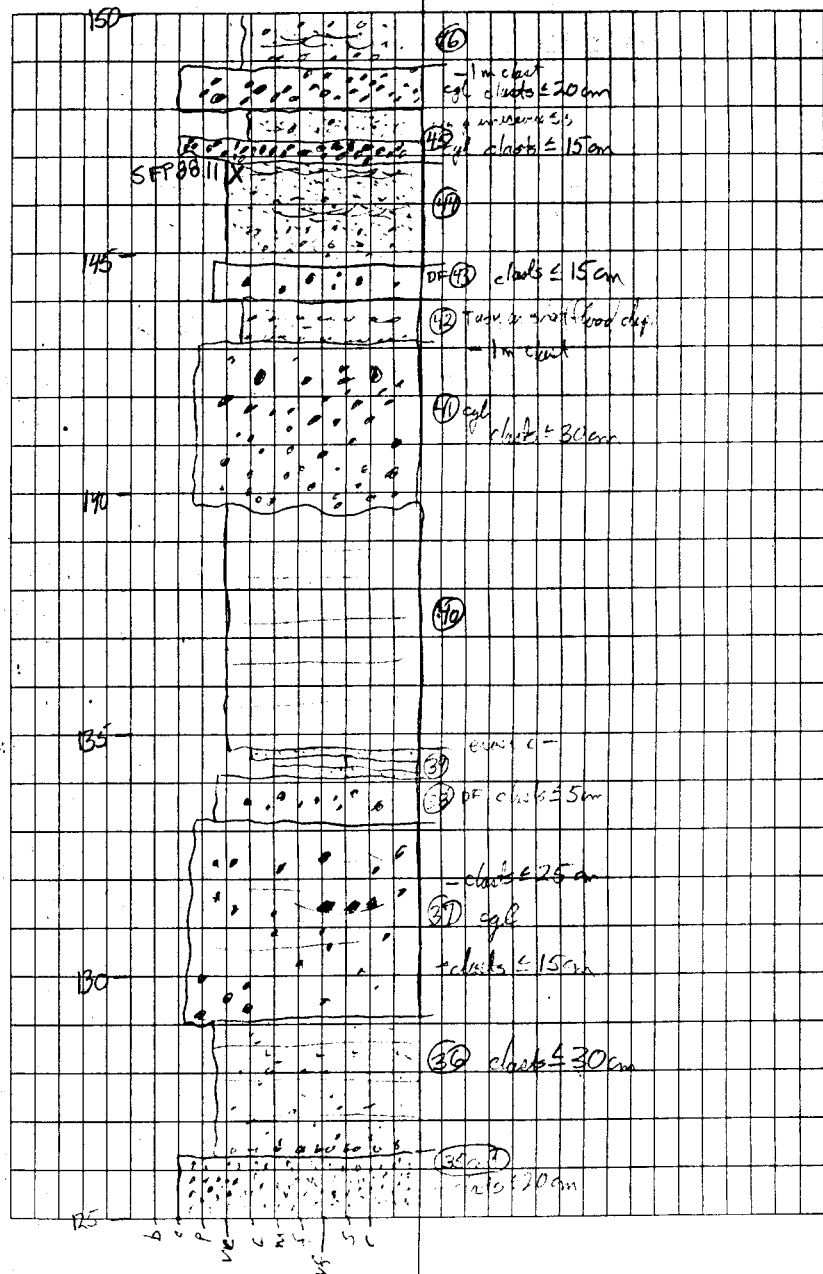 150
46
- 1m clast
cgl clasts ≤ 20cm
45 cgl clasts ≤ 15cm
SFP 88 11 X
44
145
DF 43 clasts ≤ 15cm
42
- 1m clast
41 cgl
clasts ≤ 30cm
140
40
135
39
38 DF clasts ≤ 5cm
- clasts ≤ 25cm
37 cgl
- clasts ≤ 15cm
130
36 clasts ≤ 30cm
20cm
125
b c p vc c m f vf s c